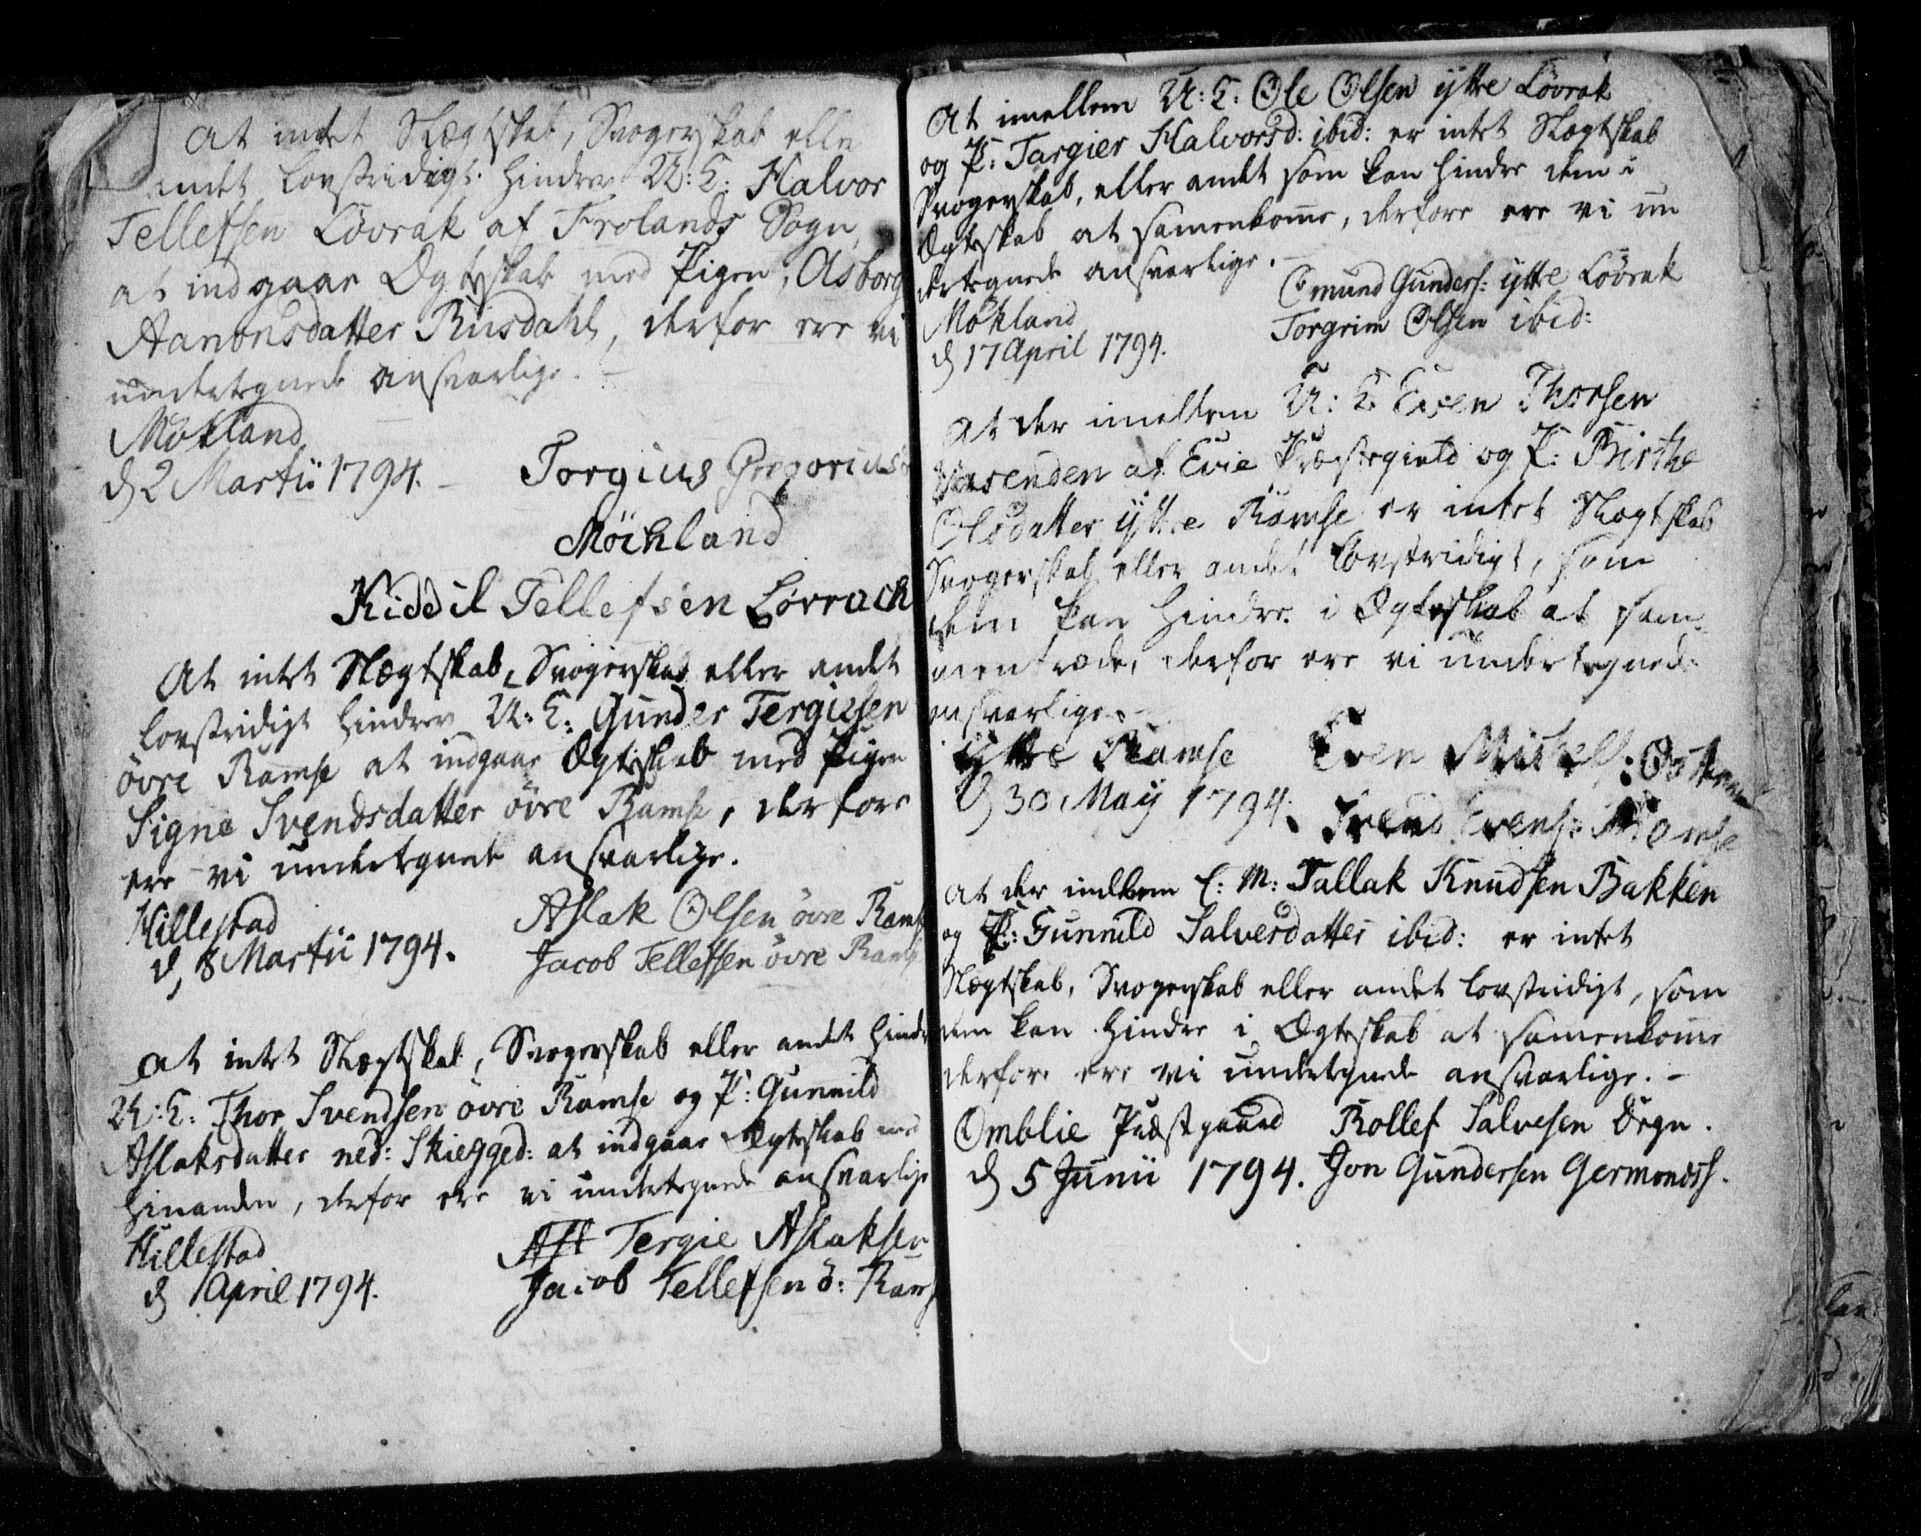 At intet Slægtskab, Svogerskab eller
andet lovstridigt hindrer U: K: Halvor
Tellefsen Lövrak af Frolands Sogn,
at indgaae Ægteskab med Pigen, Asborg
Aanonsdatter Riisdahl, derfor ere vi
undertegnede ansvarlige. –
Mökland
d 2 Martii 1794. –
Torgius Gregorius
Möckland
Kiddil Tellefsen Lövrach
At intet Slægtskab, Svogerskab eller andet
lovstridigt hindrer U: K: Gunder Tergiesen
övre Ramse at indgaae Ægteskab med Pigen
Signe Svendsdatter övre Ramse, derfore
ere vi undertegnede ansvarlige.
Hillestad
d, 8 Martii 1794.
Aslak Olsen övre Rams
Jacob Tellefsen övre Rams
At intet Slægtskab, Svogerskab eller andet hindr
U: K: Thor Svendsen övre Ramse og P: Gunnild
Aslaksdatter ned: Skiegged: at indgaae Ægteskab med
hinanden, derfor ere vi undertegnede ansvarlige
Hillestad
d 1 April 1794.
Asl Tergie Aslaksen
Jacob Tellefsen ö: Rams
At imellem U: K: Ole Olsen ytre Lövrak
og P: Targier Halvorsd: ibid: er intet Slægtskab
Svogerskab, eller andet som kan hindre dem i
Ægteskab at samenkome, derfore ere vi un
dertegnede ansvarlige. –
Mökland
d 17 April 1794.
Omund Gunders: ytre Lövrak
Torgrim Olsen ibid:
At der imellem U: K: Even Thorsen
senden af Evie Præstegield og P: Birthe
Olsdatter ytre Ramse er intet Slægtskab
Svogerskab eller andet lovstridigt, som
dem kan hindre i Ægteskab at sam-
mentræde, derfor ere vi undertegnede
ansvarlige. –
ytre Ramse
d 30 May 1794.
Even Mikels:
Svend Evens: Ramse
At der imellem E: M: Tallak Knudsen Bakken
og P: Gunnild Salvesdatter ibid: er intet
Slægtskab, Svogerskab eller andet lovstridigt, som
dem kan hindre i Ægteskab at samenkome
derfore ere vi undertegnede ansvarlige. –
Omblie Præstgaard
d 5 Junii 1794.
Rollef Salvesen Degn.
Jon Gundersen Germondss.